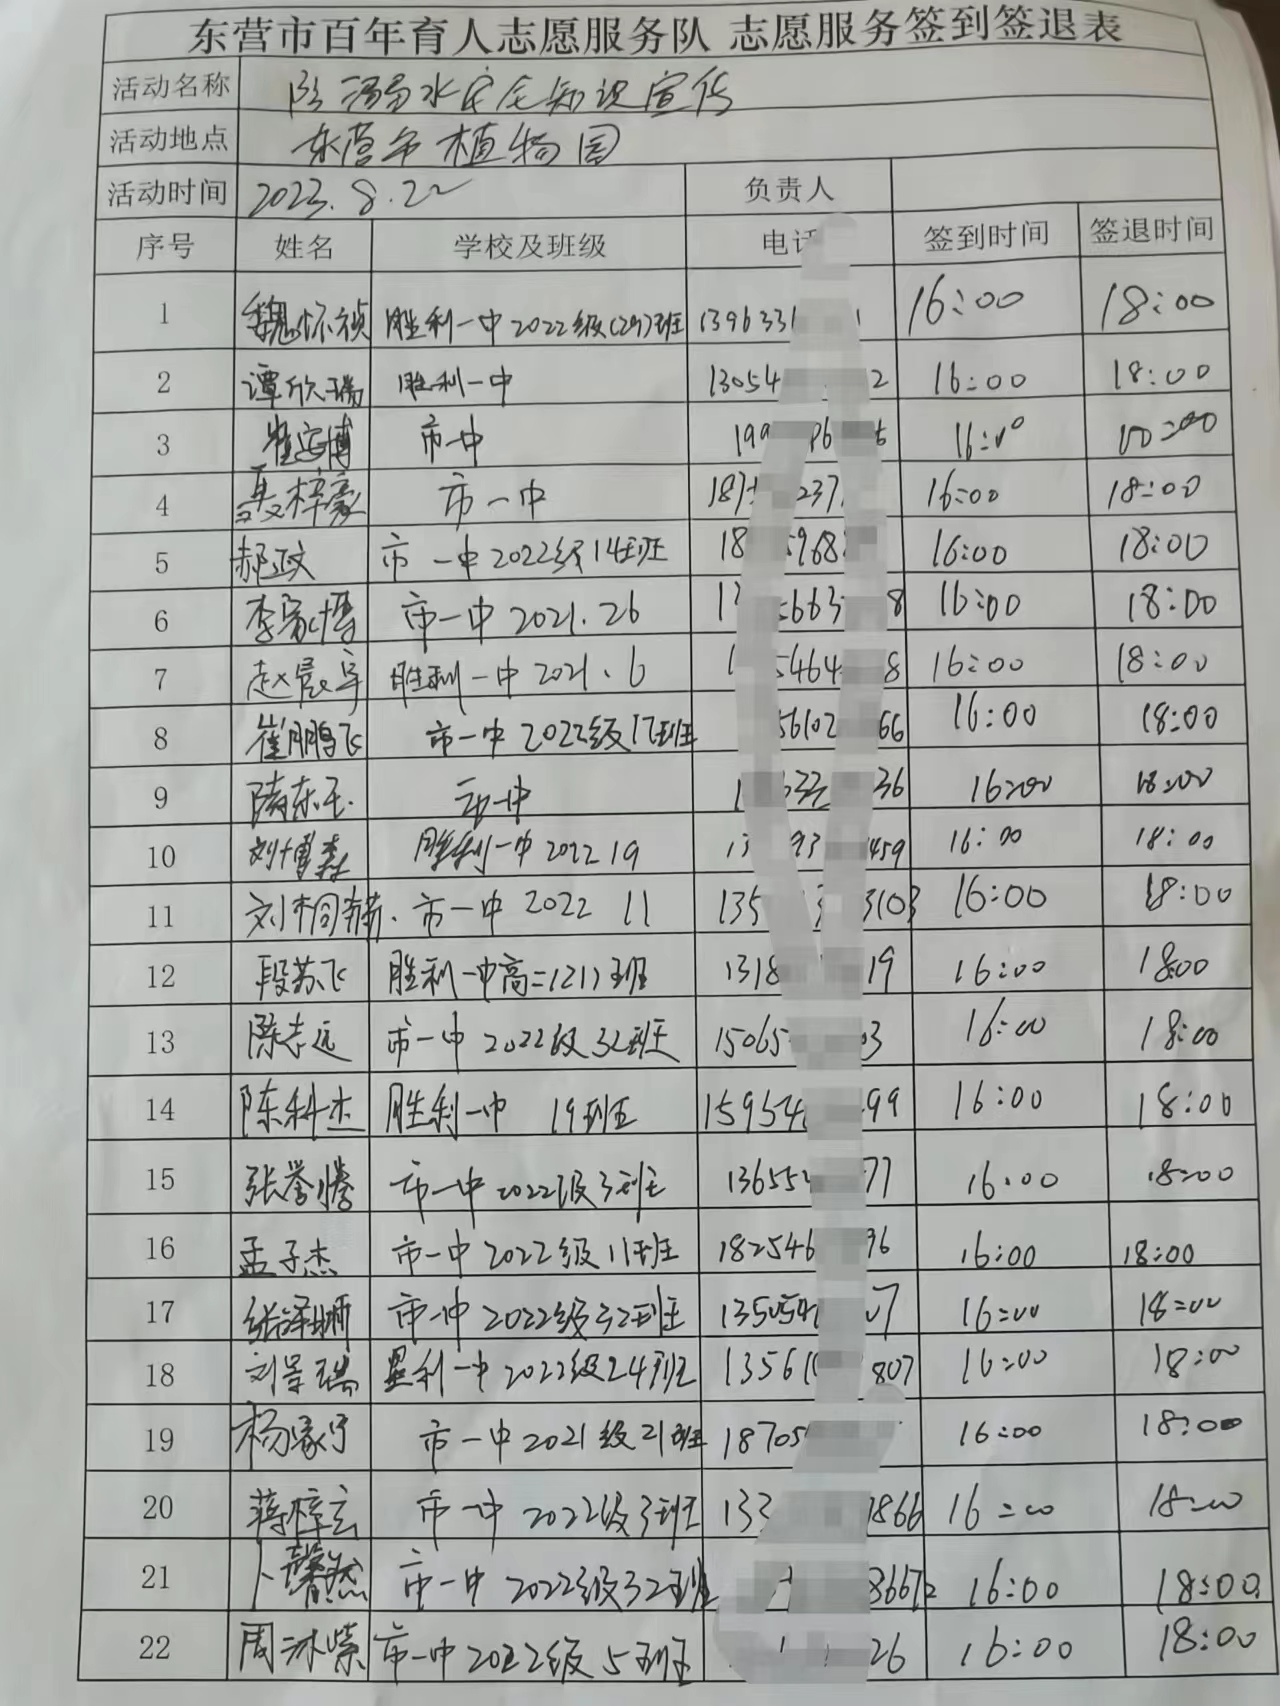 东营市百年育人志愿服务队 志愿服务签到签退表
活动名称 防溺水安全知识宣传
活动地点 东营市植物园
活动时间 2023.8.22 负责人
序号 姓名 学校及班级 电话 签到时间 签退时间
1 魏怀祯 胜利一中2022级(29)班 1396331 16:00 18:00
2 谭欣瑞 胜利一中 13054 2 16:00 18:00
3 崔安博 市一中 199 16:00
4 聂梓豪 市一中 187 237 16:00 18:00
5 郝政 市一中2022级14班 18 5968 16:00 18:00
6 李家博 市一中2021.26 5663 8 16:00 18:00
7 赵晨宇 胜利一中2021.6 5464 8 16:00 18:00
8 崔鹏飞 市一中2022级17班 56102 66 16:00 18:00
9 市一中 36 16:00 18:00
10 刘博森 胜利一中2022 19 13 93 459 16:00 18:00
11 刘桐 市一中2022 11 135 3103 16:00 18:00
12 段苏飞 胜利一中高二(21)班 1318 19 16:00 18:00
13 陈志远 市一中2022级32班 15065 03 16:00 18:00
14 陈科杰 胜利一中 19班 159546 99 16:00 18:00
15 张誉腾 市一中2022级3班 136552 77 16:00 18:00
16 孟子杰 市一中2022级11班 182546 96 16:00 18:00
17 张泽 市一中2022级32班 1350546 07 16:00 18:00
18 刘景瑞 胜利一中2022级24班 13561 807 16:00 18:00
19 杨家宁 市一中2021级21班 18705 16:00 18:00
20 蒋梓玄 市一中2022级3班 133 1866 16:00 18:00
21 卜馨然 市一中2022级32班 3667 16:00 18:00
22 周冰紫 市一中2022级5班 26 16:00 18:00